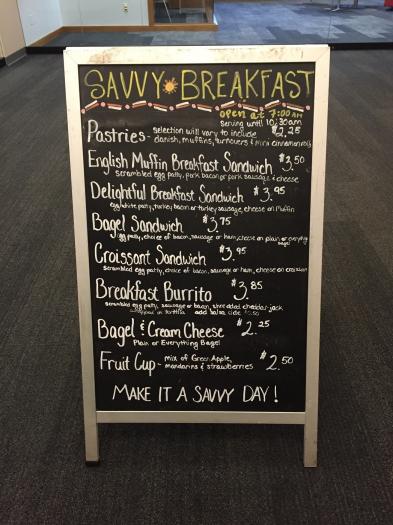 SAVVY BREAKFAST
open at 7:00 AM
serving until 10:30am
Pastries - selection will vary to include $2.25
danish, muffins, turnovers & mini cinnamon rolls
English Muffin Breakfast Sandwich $3.50
scrambled egg patty, pork bacon or pork sausage & cheese
Delightful Breakfast Sandwich $3.95
egg white patty, turkey bacon or turkey sausage, cheese on Muffin
Bagel Sandwich $3.75
egg patty, choice of bacon, sausage or ham, cheese on plain or everything
bagel
Croissant Sandwich $3.95
scrambled egg patty, choice of bacon, sausage or ham, cheese on croissant
Breakfast Burrito $3.85
scrambled egg patty, sausage or bacon, shredded cheddar-jack
wrapped in tortilla add salsa side
Bagel & Cream Cheese $2.25
Plain or Everything Bagel
Fruit Cup - mix of Green Apple, $2.50
mandarins & strawberries
MAKE IT A SAVVY DAY!